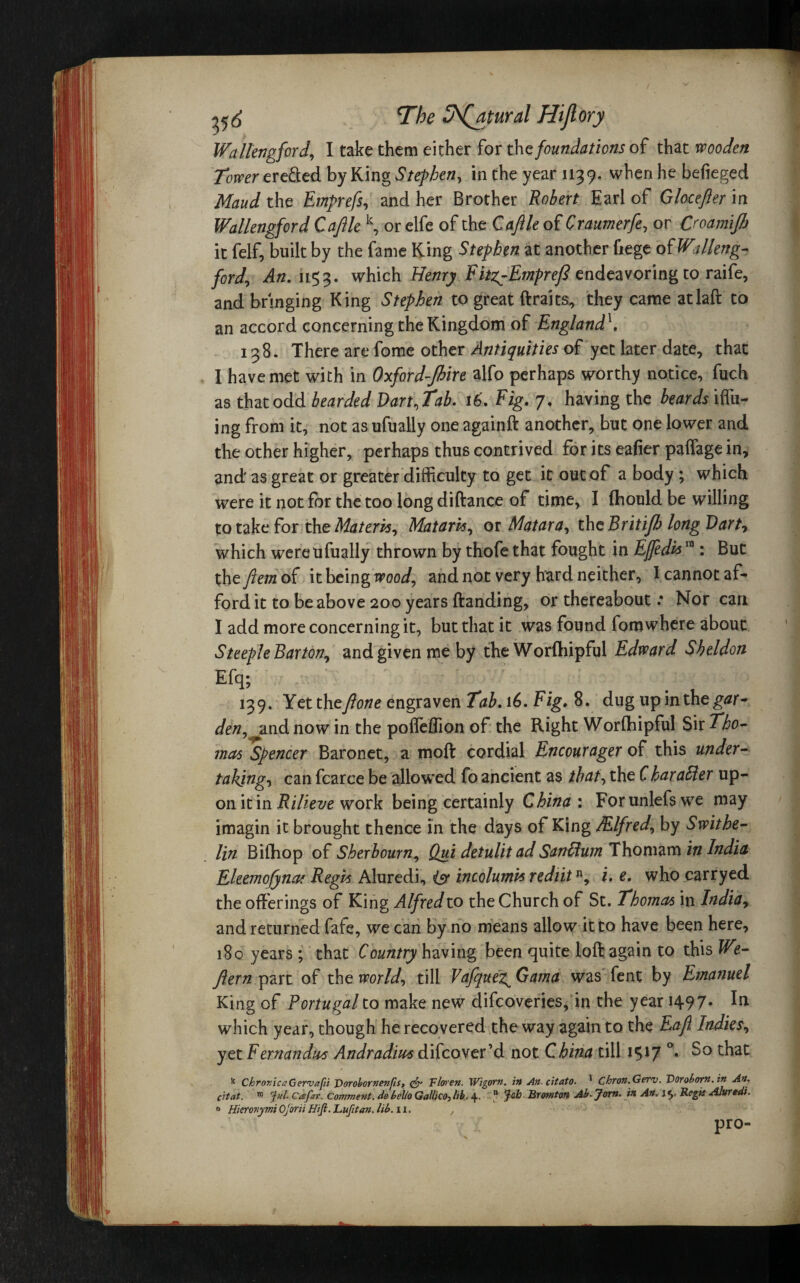 356 The Natural Hiſtory
Wallengford, I take them either for the foundations of that wooden
Tower erected by King Stephen, in the year 1139. when he beſieged
Maud the Empreſs, and her Brother Robert Earl of Gloceſter in
Wallengford Caſtle k, or elſe of the Caſtle of Craumerſe, or Croamiſh
it ſelf, built by the ſame King Stephen at another ſiege of Walleng-
ford, An. 1153. which Henry Fitz-Empreſs endeavoring to raiſe,
and bringing King Stephen to great ſtraits, they came at laſt to
an accord concerning the Kingdom of England l.
138. There are ſome other Antiquities of yet later date, that
I have met with in Oxford-ſhire alſo perhaps worthy notice, ſuch
as that odd bearded Dart, Tab. 16. Fig. 7. having the beards iſſu-
ing from it, not as uſually one againſt another, but one lower and
the other higher, perhaps thus contrived for its eaſier paſſage in,
and as great or greater difficulty to get it out of a body; which
were it not for the too long diſtance of time, I ſhould be willing
to take for the Materis, Mataris, or Matara, the Britiſh long Dart,
which were uſually thrown by thoſe that fought in Eſſedis m: But
the ſtem of it being wood, and not very hard neither, I cannot af-
ford it to be above 200 years ſtanding, or thereabout: Nor can
I add more concerning it, but that it was found ſomwhere about
Steeple Barton, and given me by the Worſhipful Edward Sheldon
Eſq;
139. Yet the ſtone engraven Tab. 16. Fig. 8. dug up in the gar-
den, and now in the poſſeſſion of the Right Worſhipful Sir Tho-
mas Spencer Baronet, a moſt cordial Encourager of this under-
taking, can ſcarce be allowed ſo ancient as that, the Character up-
on it in Rilieve work being certainly China: For unleſs we may
imagin it brought thence in the days of King Ælfred, by Swithe-
lin Biſhop of Sherbourn, Qui detulit ad Sanctum Thomam in India
Eleemoſynas Regis Aluredi, & incolumis rediit n, i. e. who carryed
the offerings of King Alfred to the Church of St. Thomas in India,
and returned ſafe, we can by no means allow it to have been here,
180 years; that Country having been quite loſt again to this We-
ſtern part of the world, till Vaſquez Gama was ſent by Emanuel
King of Portugal to make new diſcoveries, in the year 1497. In
which year, though he recovered the way again to the Eaſt Indies,
yet Fernandus Andradius diſcover'd not China till 1517 o. So that
k Chronica Gervaſii Dorobornenſis, & Floren. Wigorn. in An. citato. l Chron. Gerv. Doroborn. in An.
citat. m Jul. Cæſar. Comment. de bello Gallico, lib. 4. n Joh Bromton Ab. Jorn. in An. 15. Regis Aluredi.
o Hieronymi Oſorii Hiſt. Luſitan. lib. 11.
pro-